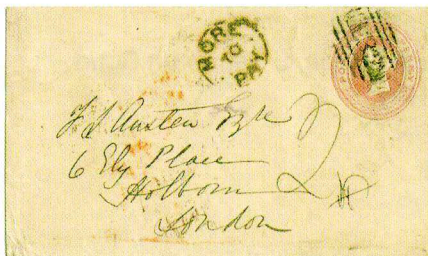 MORE
TO
PAY
F S Austen Esqre
6 Ely Place
Holborn
London
2